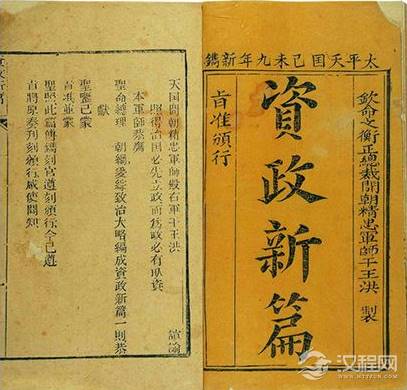 太平天囯己未九年新鐫
欽命文衡正總裁開朝精忠軍師干王洪 製
資政新篇
旨准頒行
天囯開朝精忠軍師殿右軍干王洪 諠諭
照得治囯必先立政而為政必有取資
本軍師恭膺
聖命總理 朝綱爰綜致治大略編成資政新篇一則恭
獻
聖鑒已蒙
旨准並蒙
聖照此篇傳鐫刻官遵刻頒行今已遵
旨將原奏刊刻頒行咸使聞知
汉程网
HTTPCN.COM